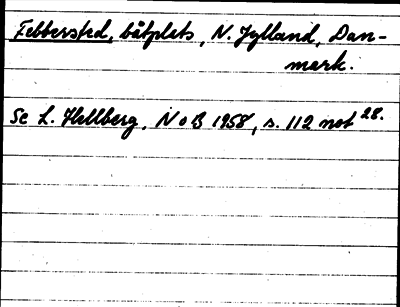 Febbersted, båtplats, N. Jylland, Dan-
mark.
Se L. Hellberg, NoB 1958, s. 112 not 28.